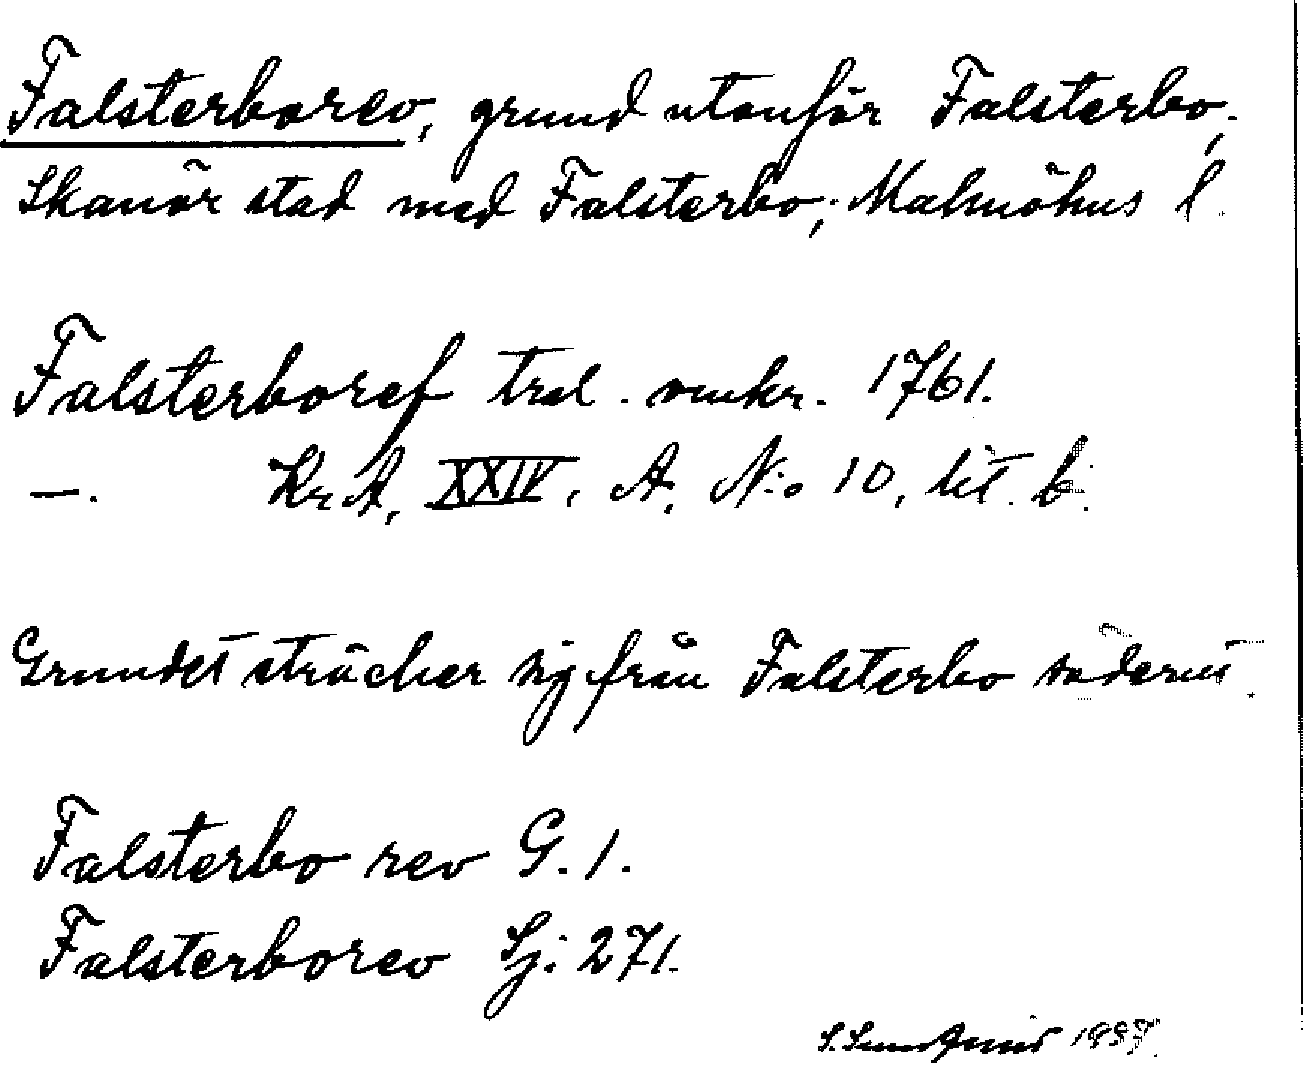 Falsterborev, grund utanför Falsterbo,
Skanör stad med Falsterbo, Malmöhus l.
Falsterboref tral. omkr. 1761.
—. Kr.A, XXIV, A, N:o 10, lit. b.
Grundet sträcker sig från Falsterbo söderut.
Falsterbo rev G. 1.
Falsterborev Sj: 271.
1937.